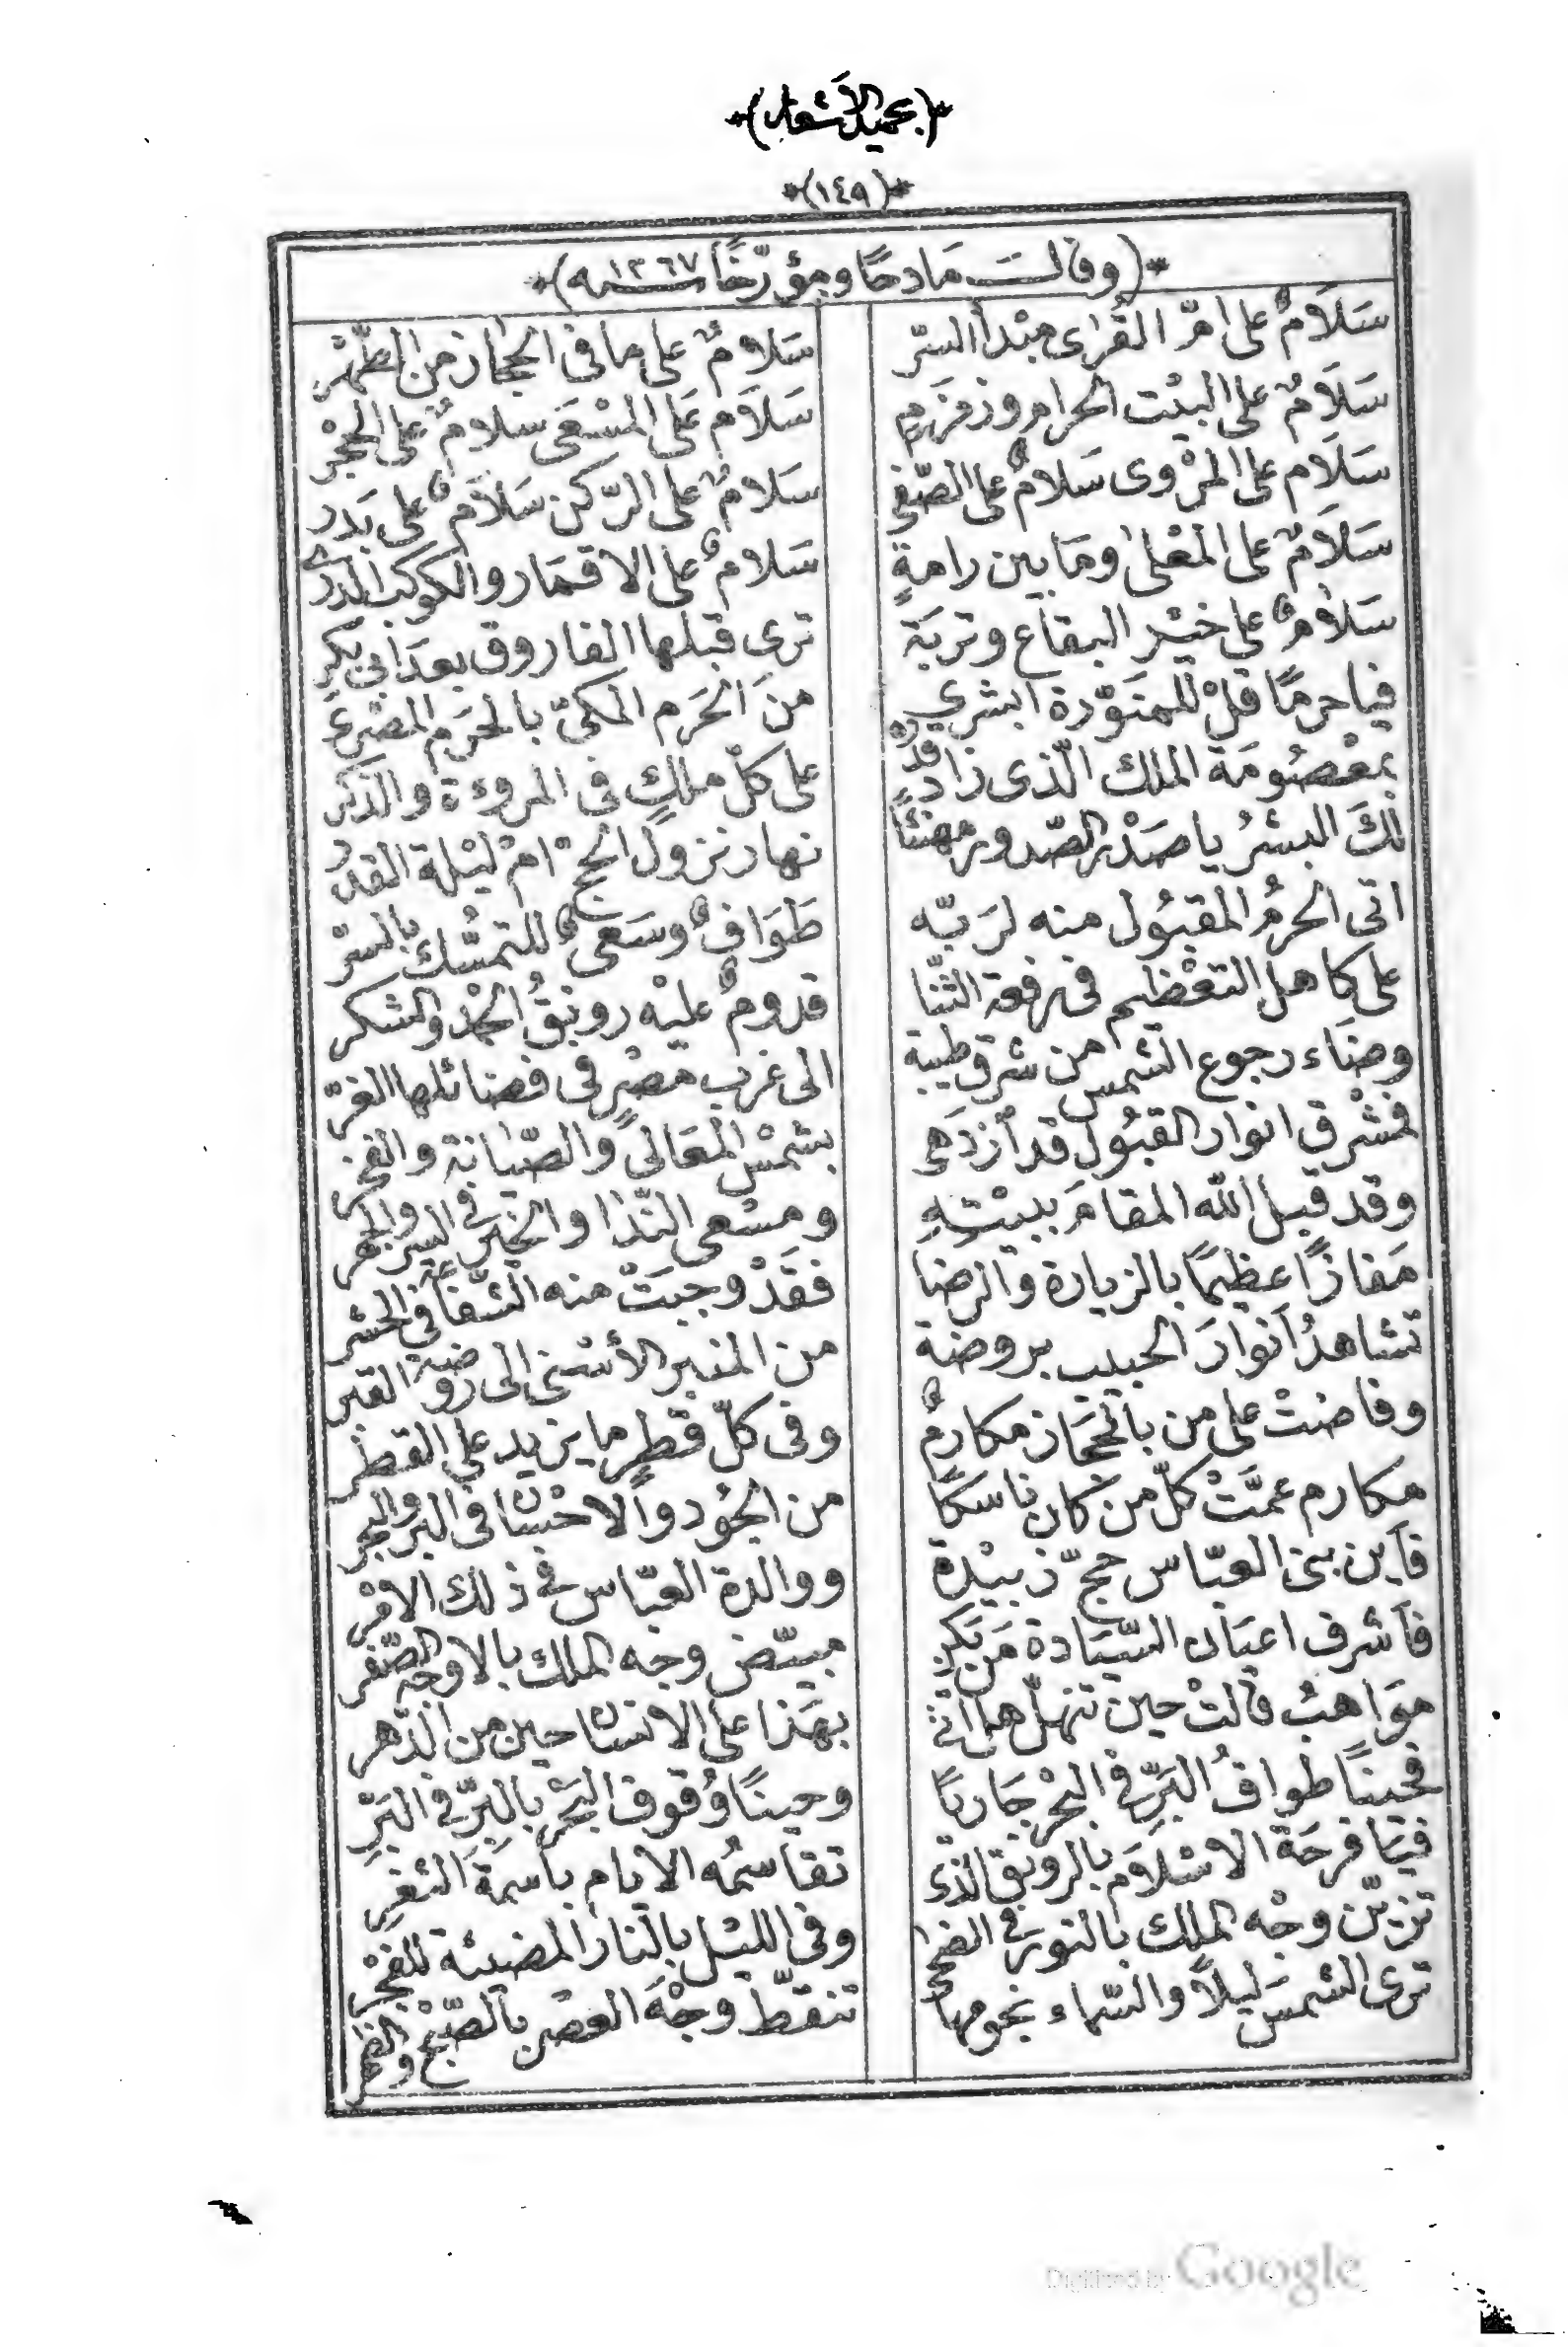 *(بحميد الأشعار)*
*(١٤٩)*
*(وقالت مادحًا ومؤرّخًا سنه ١٢٦٧)*
سَلَامٌ على امّ القُرٰى مبْدأ السّر سَلامٌ على ما فى الحجاز من الطّهْر
سَلَامٌ على البيْت الحرام وزمْزم سَلاَم عَلَى المسْعَى سلامٌ على الحجْر
سَلاَم على المرْوى سَلامٌ على الصّفى سَلامٌ على الرّكن سَلاَمٌ على بَدر
سَلاَمٌ على المعْلى ومَا بين رامةٍ سَلامٌ على الاقمَار والكوكب الدرى
سَلاَمٌ على خيْر البقاع وتربَة ترى قبلها الفاروق بعدَ ابى بكرِ
فيا حرمًا قلْ للمنوّرة ابشرى منَ الحَرم المكىّ بالحَرم المصْرى
بمعْصُومَة الملك الّذى زاد قدره على كلّ ملكٍ فى المروءة والذكر
لكَ البشرُ يا صَدْر الصّدور مهنئًا نهار نزول الحجّ امْ ليْلة القدر
اتى الحرمُ المقبُول منه لرَبّه طَوَافٌ وسَعىٌ للتمسُّك بالسرّ
على كاهل التعْظيم فى رفعة الثّنا قدومٌ عليْه رونقُ الحمْد والشكر
وضَاء رجوع الشّمس من شرق طيبة الى غرب مصْرٍ فى فضائلها الغرّ
فمشْرق انوار القبُول قد أزدَهى بشمْس المعَالى والصّيانة والفخر
وقد قبل الله المقامَ ببيْتهِ ومسْعى النّدا والخيْر فى السر والجهر
مَفازًا عظيمًا بالزيارة والرضا فقَدْ وجبَتْ منه الشّفاعة فى الحشر
تشاهدُ أنوارَ الحبيب بروضة من المنبر الأسْنى الى روْضة القبر
وفاضتْ على من بالحجَاز مكارمٌ وفى كلّ قطرٍ ما يزيد على القطْر
مكارم عمَّتْ كلّ من كان ناسكًا من الجُود والاحْسان فى البرّ والبحر
فأين بنى العبّاس حجّ زبيْدة ووالدة العبّاس فى ذلك الامْر
فأشرف اعيان السّيَادة مَن يَكن مبيّض وجْه الملك بالاوجه الصّفر
موَاهبُ قالتْ حين تنهلّ هل اتى بهَذا على الانسان حين من الدّهر
فحينًا طوافُ البَرّ فى البحْر جَاريًا وحينًا وُقوف البَحْر بالبِرّ فى البَرّ
فيَا فرحَة الاسْلاَم بالرونق الذى تقاسمُه الايام باسمَة الثغر
تزيّن وجْه الملك بالنور فى الضحى وفى الليْل بالنار المضيئة للفَجْر
ترى الشمسَ ليلاً والسّماء نجومها تنقطّ وجْهَ العصْر بالصّبْح والظهر
Digitized by Google